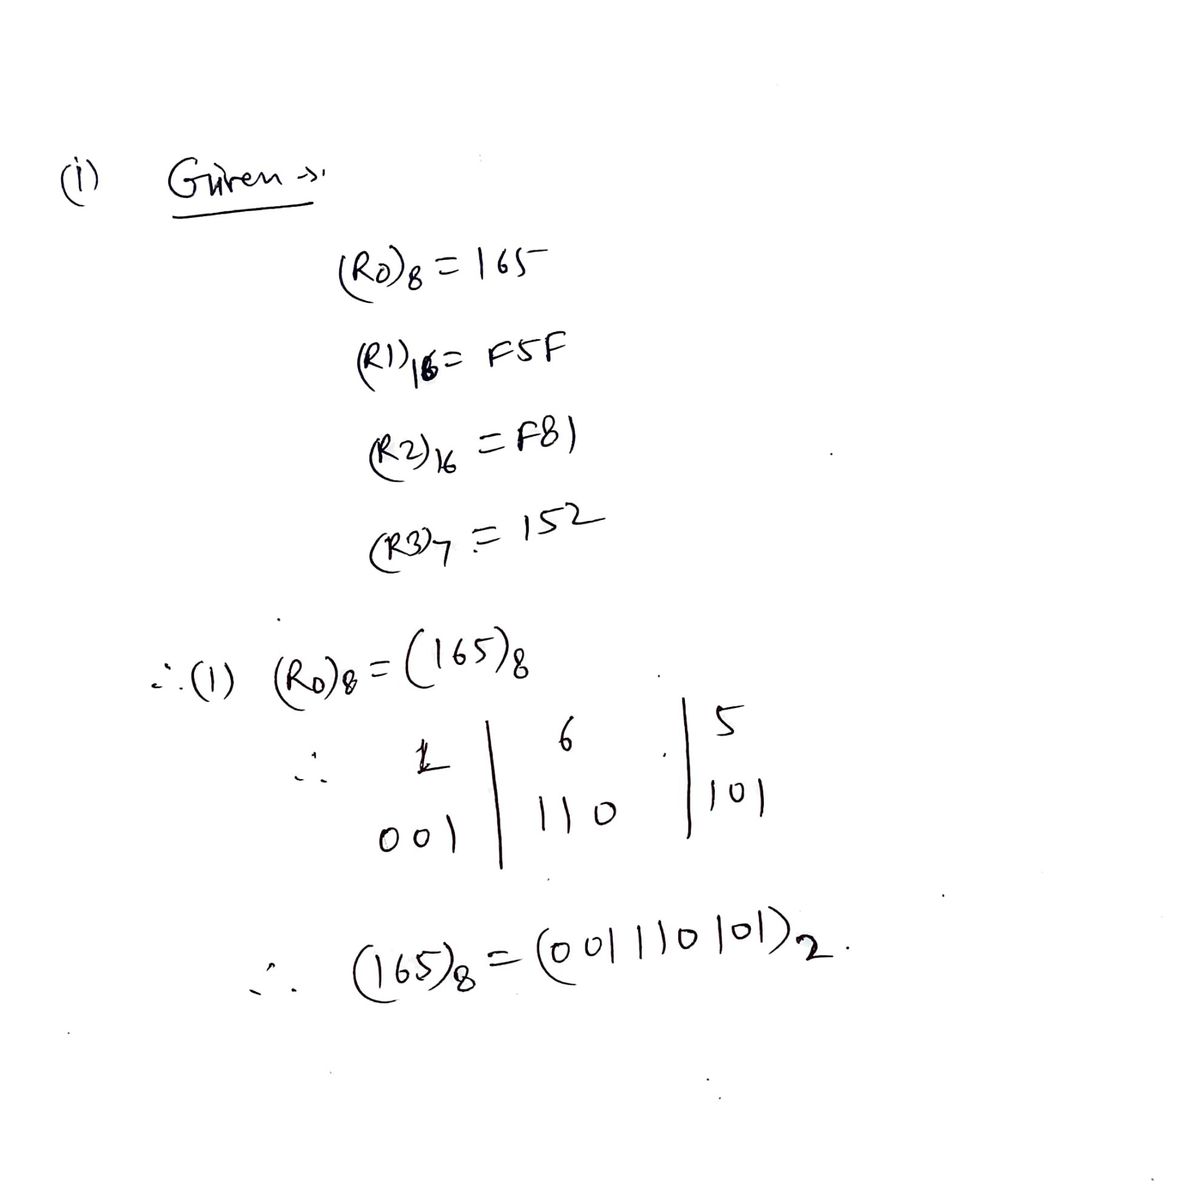 (i) Given →
(R0)8 = 165
(R1)16 = F5F
(R2)16 = F81
(R3)7 = 152
∴ (1) (R0)8 = (165)8
∴ 1 | 6 | 5
001 | 110 | 101
∴ (165)8 = (001110101)2.